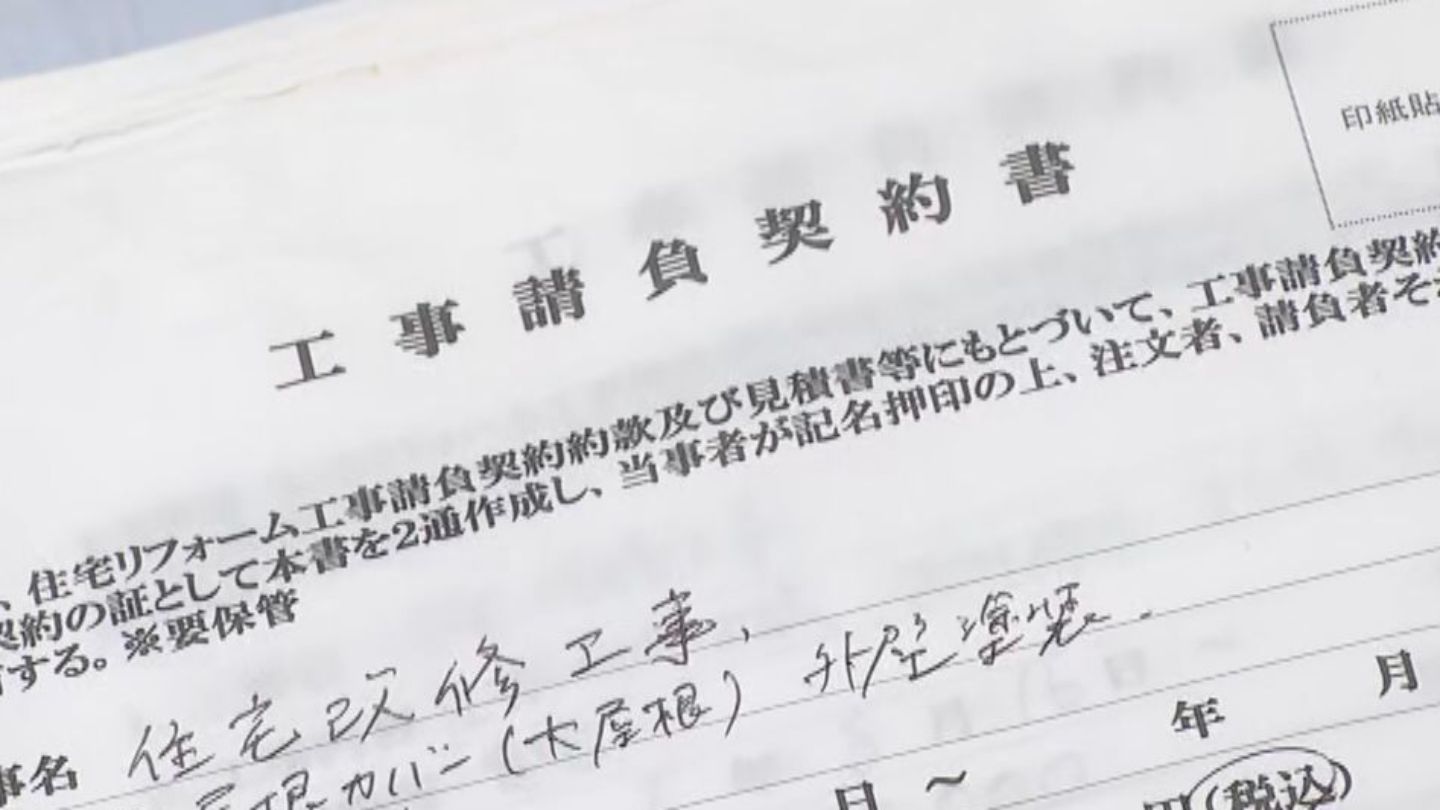 印紙貼
工事請負契約書
、住宅リフォーム工事請負契約約款及び見積書等にもとづいて、工事請負契約
契約の証として本書を2通作成し、当事者が記名押印の上、注文者、請負者そ
する。※要保管
事名 住宅改修工事、外壁塗装.
屋根カバー(大屋根)
年 月
日 ~
円(税込)